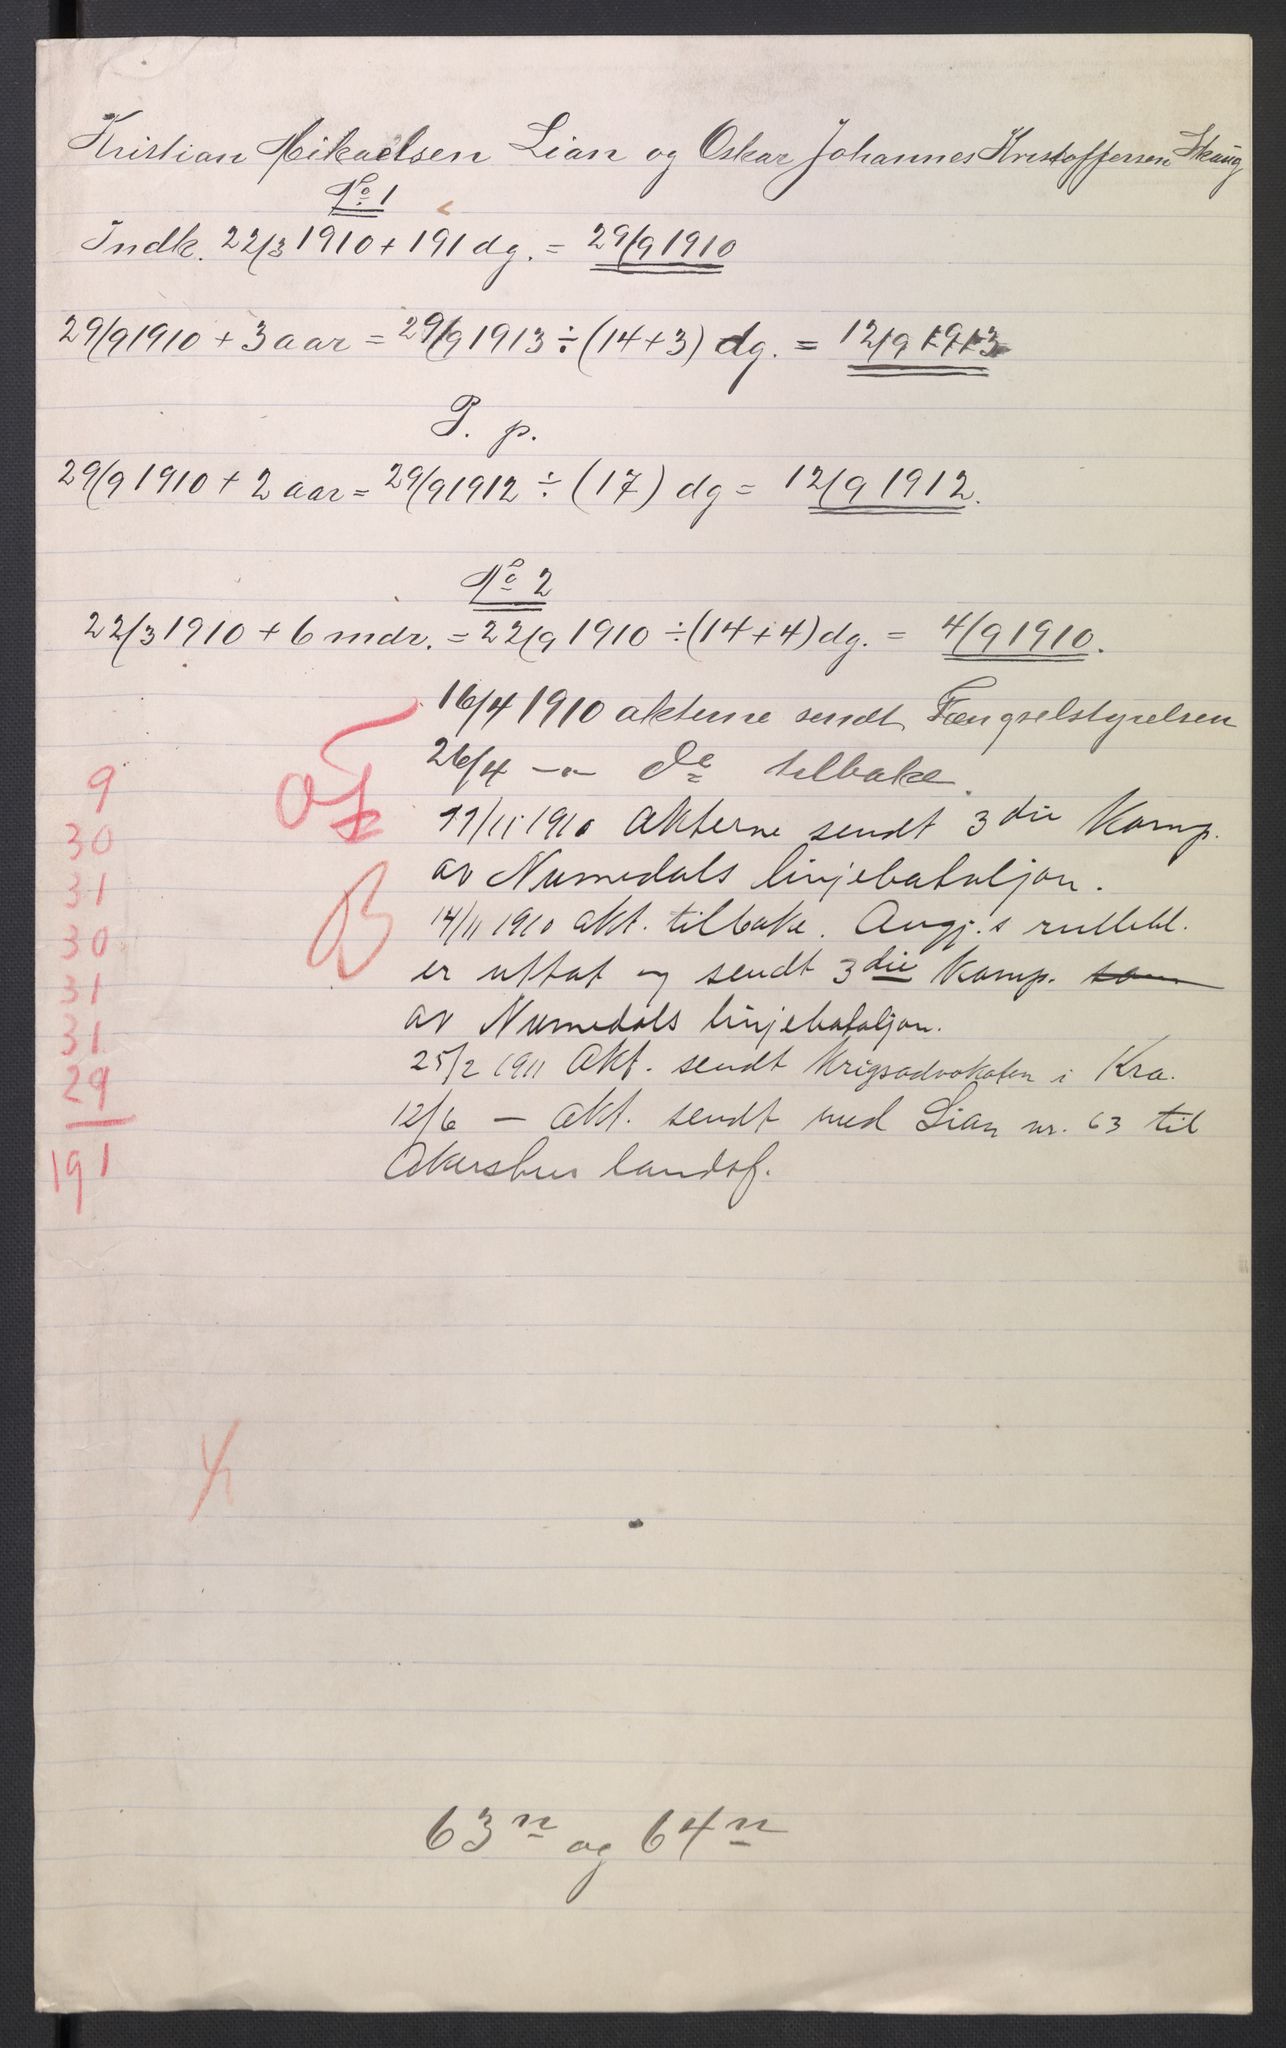 Kristian Mikaelsen Lian og Oskar Johannes Kristoffersen Skaug
No 1
Indk. 22/3 1910 + 191 dg. = 29/9 1910
29/9 1910 + 3 aar = 29/9 1913 ÷ (14 + 3) dg. = 12/9 1913
P. p.
29/9 1910 + 2 aar = 29/9 1912 ÷ (17) dg = 12/9 1912.
No 2
22/3 1910 + 6 mdr. = 22/9 1910 ÷ (14 + 4) dg. = 4/9 1910.
16/4 1910 akterne sendt Fængselstyrelsen
26/4 — " — do tilbake.
11/11 1910 akterne sendt 3die Komp.
av Numedals linjebataljon.
14/11 1910 akt. tilbake. Angj.s rullebl.
er uttat og sendt 3die Komp.
av Numedals linjebataljon.
25/2 1911 Akt. sendt Krigsadvokaten i Kra.
12/6 — akt. sendt med Lian nr. 63 til
Akershus landsf.
9
30
31
30
31
31
29
191
63n og 64n